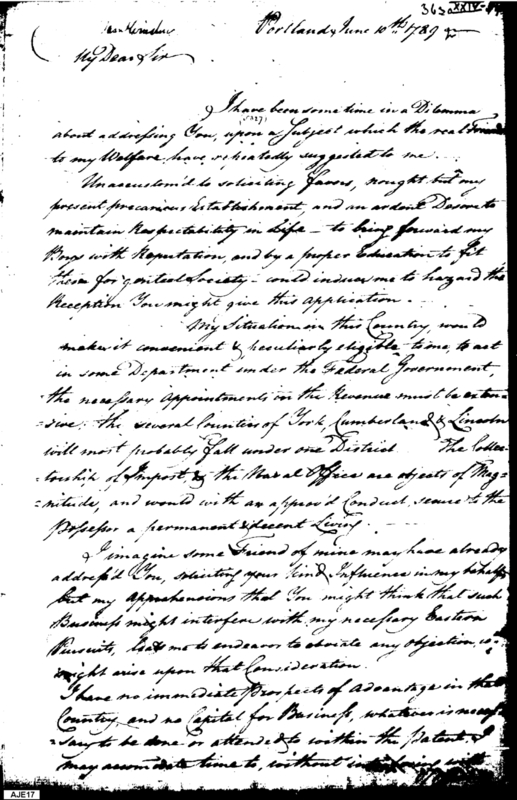 363 XXIV
Portland June 10th 1789
My Dear Sir
I have been some time in a Dilemma
about addressing You, upon a Subject which the real Friends
to my Welfare have repeatedly suggested to me
Unaccustom'd to soliciting favors, nought but my
present precarious Establishment, and an ardent Desire to
maintain Respectability in Life - to bring forward my
Boys with Reputation, and by a proper Education to fit
them for genteel Society - could induce me to hazard the
Reception You might give this Application.
My Situation in this Country, would
make it convenient & peculiarly eligible to me, to act
in some Department under the Federal Government,
the necessary Appointments in the Revenue must be exten
=sive: the several Counties of York, Cumberland & Lincoln
will most probably fall under one District. The Collec-
=torship of Impost, & the Naval Office are objects of Mag-
=nitude, and would with an approv'd Conduct secure to the
Possessor a permanent & decent Living.
I imagine some Friend of mine may have already
address'd You, soliciting your kind Influence in my behalf,
but my Apprehensions that You might think that such
Business might interfere with my necessary Eastern
Pursuits, leads me to endeavor to obviate any objection,
might arise upon that Consideration.
I have no immediate Prospects of Advantage in that
Country, and no Capital for Business, whatever is neces-
sary to be done or attended to within the Patent, I
may accomodate time to, without interfering with
AJE17